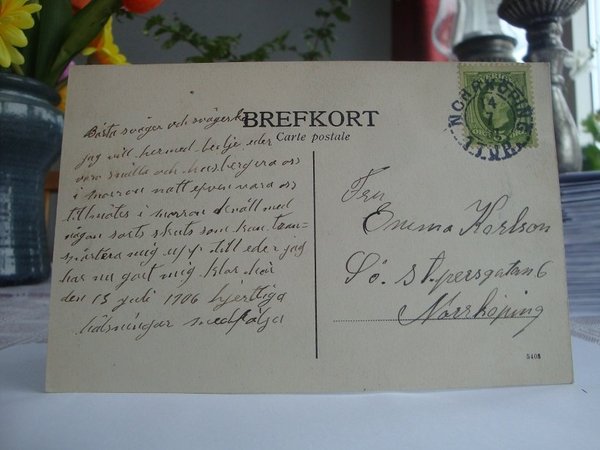 BREFKORT
Carte postale
Bästa svåger och svägerska
jag vill hermed bedja eder
vara snälla och härbergera oss
i morron natt även vara oss
till mötes i morron kväll med
någon sorts skuts som kan tran=
sportera mig upp till eder jag
har nu gort mig klar här
den 15 juli 1906 hjertliga
hälsningar medfölja
Fru
Emma Karlson
Sö. st. persgatan 6
Norrköping
NORRKÖPING
5408